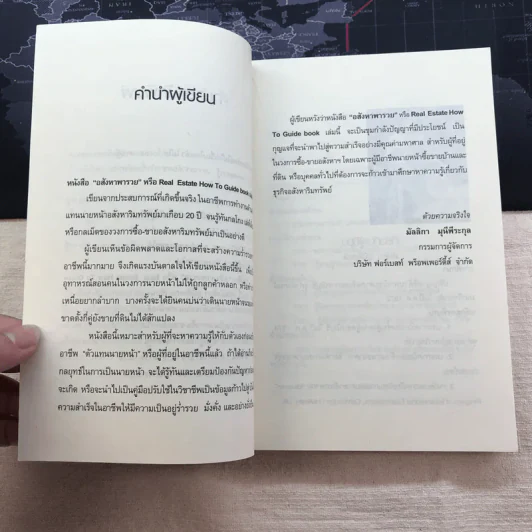 คำนำผู้เขียน
หนังสือ "อสังหาพารวย" หรือ Real Estate How To Guide book
เขียนจากประสบการณ์ที่เกิดขึ้นจริง ในอาชีพการทำงาน
แทนนายหน้าอสังหาริมทรัพย์มาเกือบ 20 ปี จนรู้ทันกลโกง
หรือกลเม็ดของวงการซื้อ-ขายอสังหาริมทรัพย์มาเป็นอย่างดี
ผู้เขียนเห็นข้อผิดพลาดและโอกาสที่จะสร้างความร่ำรวย
อาชีพนี้มากมาย จึงเกิดแรงบันดาลใจให้เขียนหนังสือนี้ขึ้น
อุทาหรณ์สอนคนในวงการนายหน้าไม่ให้ถูกลูกค้าหลอก
เหนื่อยยากลำบาก บางครั้งจะได้ยินคนบ่นว่าเดินนายหน้าจน
ขาดตั้งกี่คู่ยังขายที่ดินไม่ได้สักแปลง
หนังสือนี้เหมาะสำหรับผู้ที่จะหาความรู้ให้กับตัวเองก่อน
อาชีพ "ตัวแทนนายหน้า" หรือผู้ที่อยู่ในอาชีพนี้แล้ว ถ้าได้อ่าน
กลยุทธ์ในการเป็นนายหน้า จะได้รู้ทันและเตรียมป้องกันปัญหา
จะเกิด หรือจะนำไปเป็นคู่มือปรับใช้ในวิชาชีพเป็นข้อมูลก้าวไปสู่
ความสำเร็จในอาชีพให้มีความเป็นอยู่ร่ำรวย มั่งคั่ง และอย่าง
ผู้เขียนหวังว่าหนังสือ "อสังหาพารวย" หรือ Real Estate How
To Guide book เล่มนี้ จะเป็นขุมกำลังปัญญาที่มีประโยชน์ เป็น
กุญแจที่จะนำพาไปสู่ความสำเร็จอย่างมีคุณค่ามหาศาล สำหรับผู้ที่อยู่
ในวงการซื้อ-ขายอสังหาฯ โดยเฉพาะผู้มีอาชีพนายหน้าซื้อขายบ้านและ
ที่ดิน หรือบุคคลทั่วไปที่ต้องการจะก้าวเข้ามาศึกษาหาความรู้เกี่ยวกับ
ธุรกิจอสังหาริมทรัพย์
ด้วยความจริงใจ
มัลลิกา มุนีพีระกุล
กรรมการผู้จัดการ
บริษัท ฟอร์เบสท์ พร็อพเพอร์ตี้ส์ จำกัด